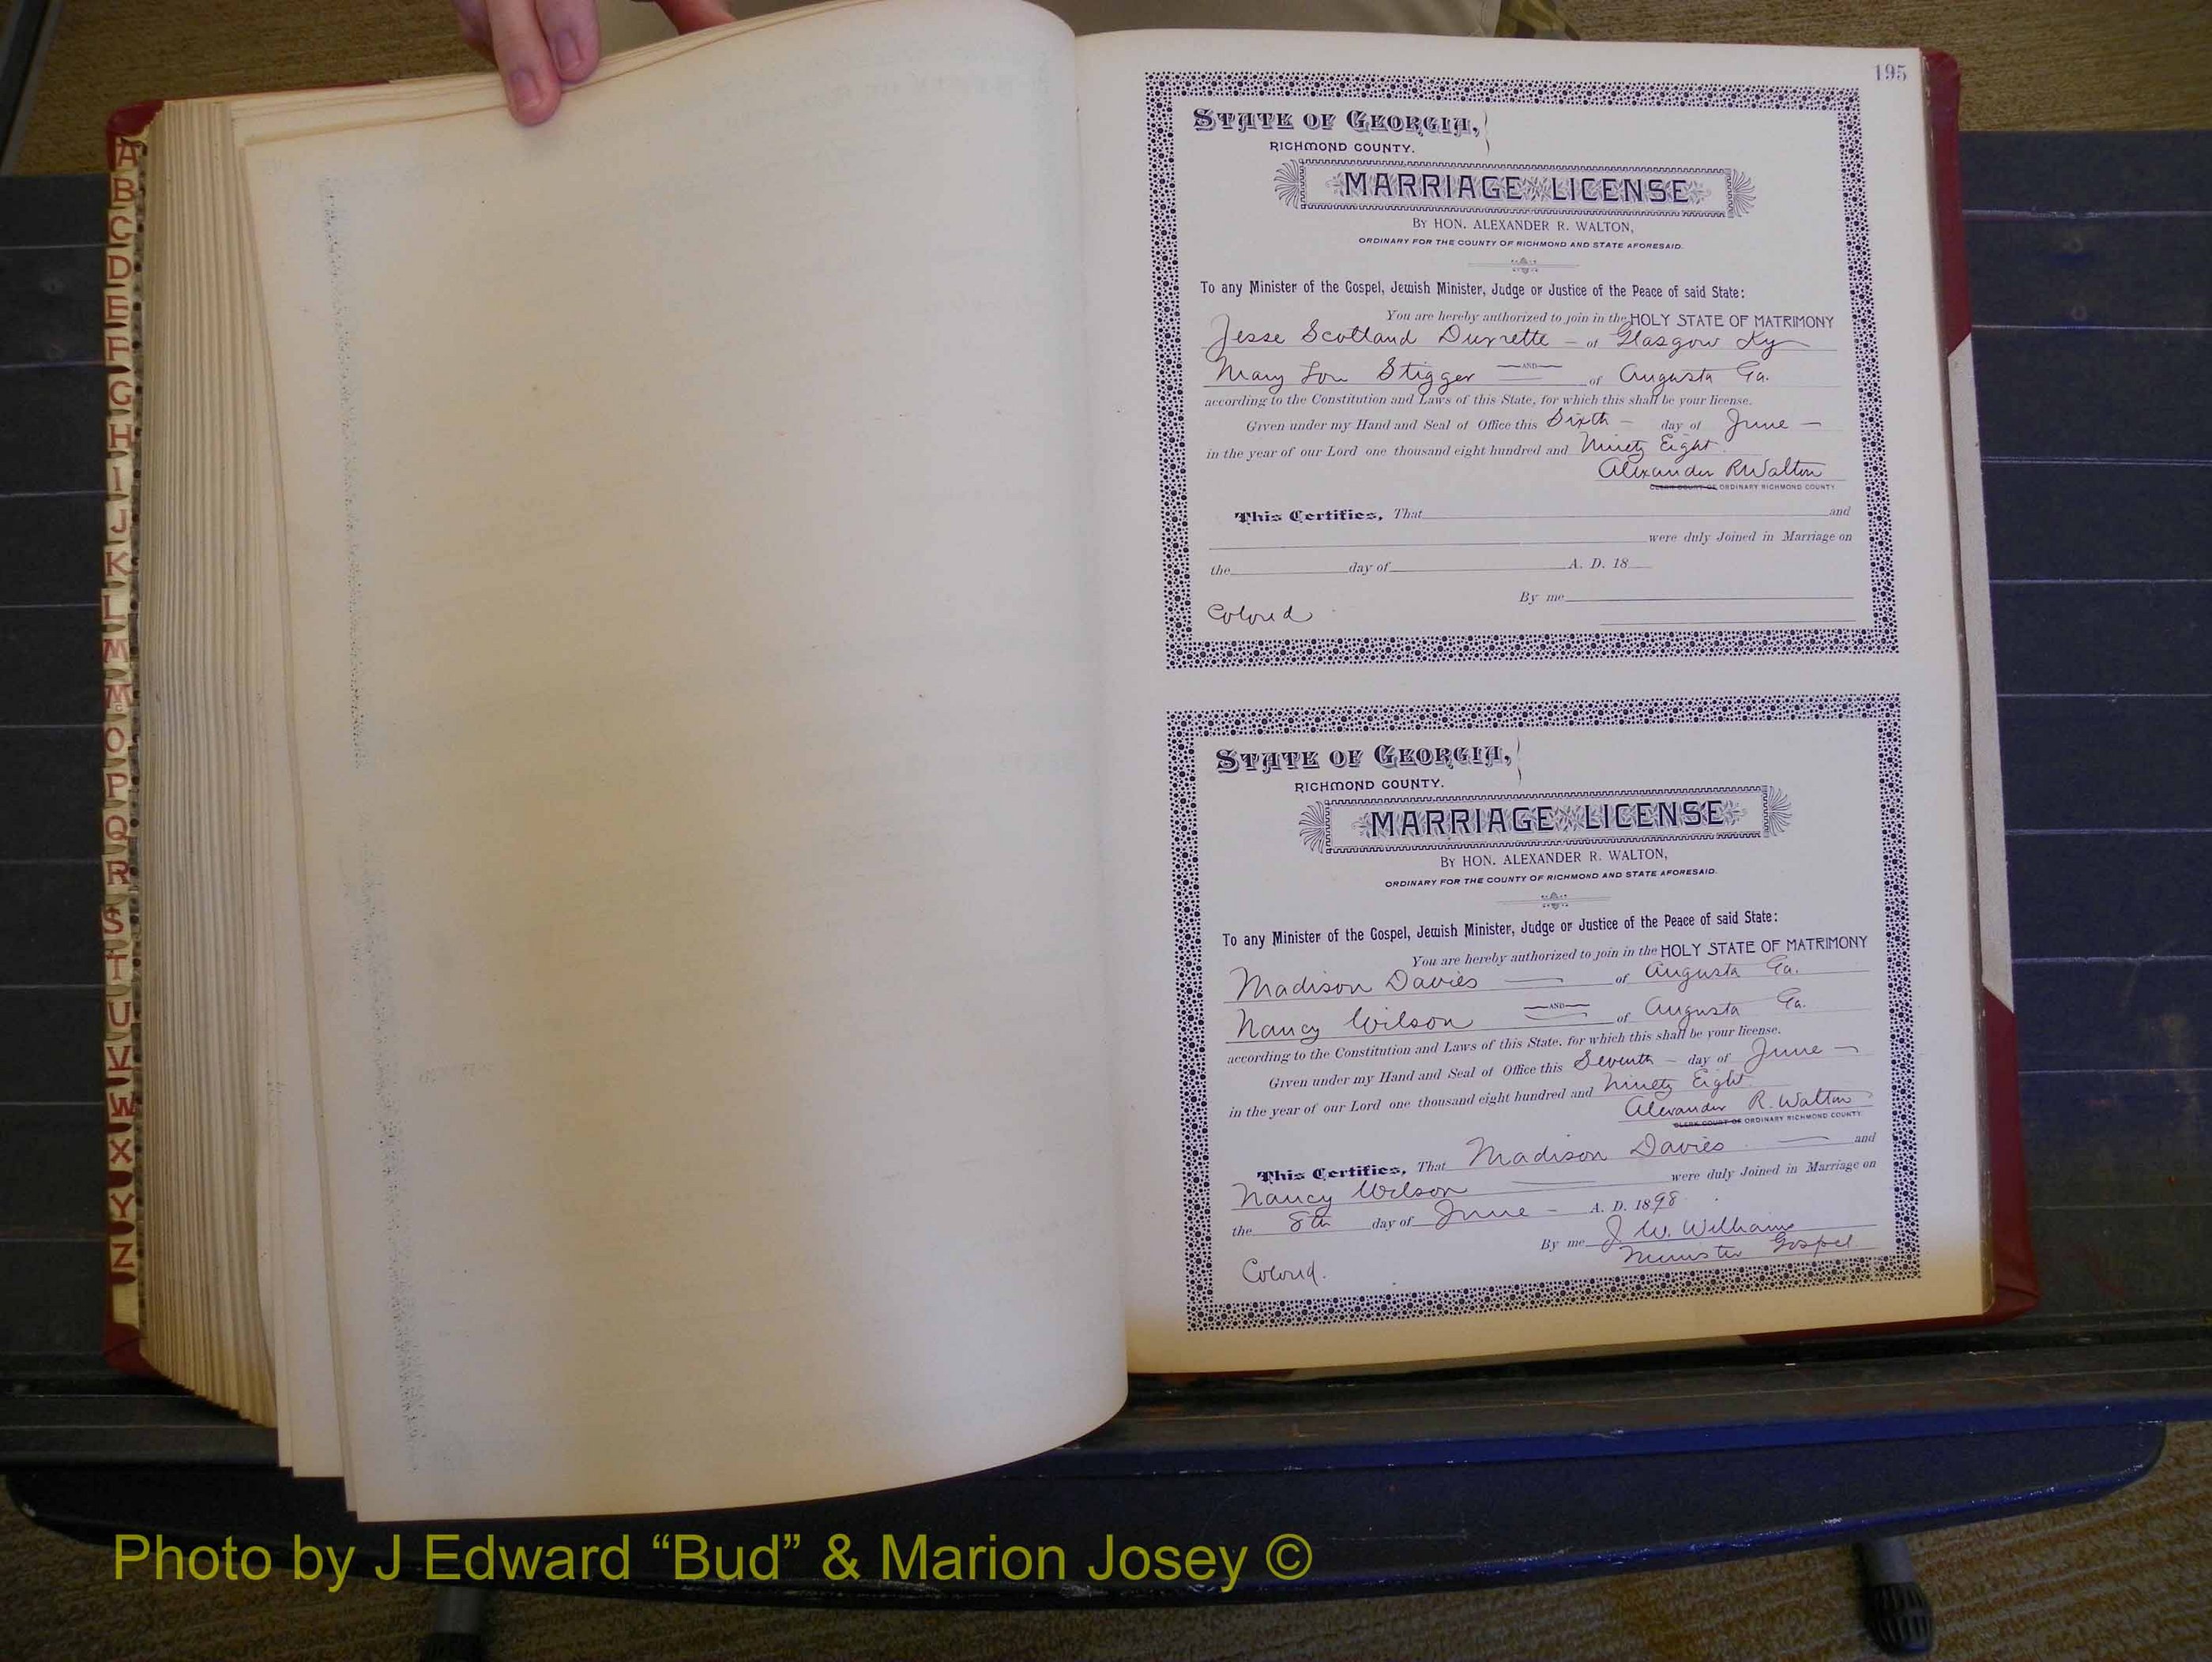 195
A
B
C
D
E
F
G
H
I
J
K
L
M
Mc
O
P
Q
R
S
T
U
V
W
X
Y
Z
STATE OF GEORGIA,
RICHMOND COUNTY.
MARRIAGE LICENSE
BY HON. ALEXANDER R. WALTON,
ORDINARY FOR THE COUNTY OF RICHMOND AND STATE AFORESAID.
To any Minister of the Gospel, Jewish Minister, Judge or Justice of the Peace of said State:
You are hereby authorized to join in the HOLY STATE OF MATRIMONY
Jesse Scotland Durrette - of Glasgow Ky
AND
Mary Lou Stigger of Augusta Ga.
according to the Constitution and Laws of this State, for which this shall be your license.
Given under my Hand and Seal of Office this Sixth - day of June -
in the year of our Lord one thousand eight hundred and Ninety Eight.
Alexander R Walton
CLERK COURT OF ORDINARY RICHMOND COUNTY
This Certifies, That and
were duly Joined in Marriage on
the day of A. D. 18
By me
Colored
STATE OF GEORGIA,
RICHMOND COUNTY.
MARRIAGE LICENSE
BY HON. ALEXANDER R. WALTON,
ORDINARY FOR THE COUNTY OF RICHMOND AND STATE AFORESAID.
To any Minister of the Gospel, Jewish Minister, Judge or Justice of the Peace of said State:
You are hereby authorized to join in the HOLY STATE OF MATRIMONY
Madison Davies of Augusta Ga.
AND
Nancy Wilson of Augusta Ga.
according to the Constitution and Laws of this State, for which this shall be your license.
Given under my Hand and Seal of Office this Seventh - day of June -
in the year of our Lord one thousand eight hundred and Ninety Eight
Alexander R. Walton
CLERK COURT OF ORDINARY RICHMOND COUNTY
This Certifies, That Madison Davies and
Nancy Wilson were duly Joined in Marriage on
the 8th day of June - A. D. 1898
By me J W. Williams
Minister Gospel
Colored.
Photo by J Edward “Bud” & Marion Josey ©